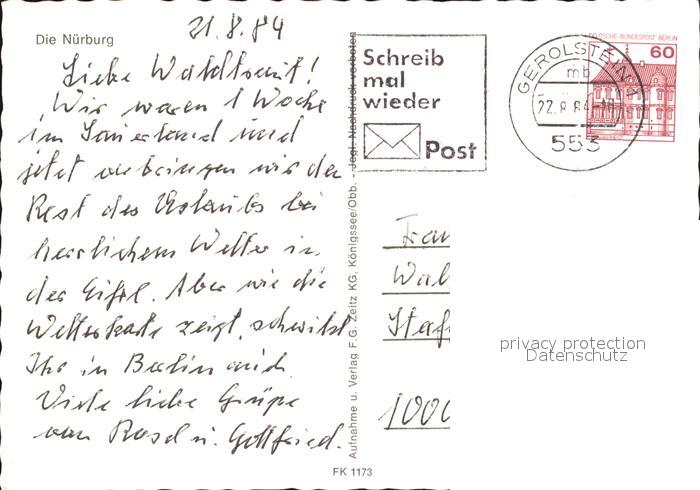 Die Nürburg
21.8.84
Liebe Waldtraut!
Wir waren 1 Woche
im Sauerland und
jetzt verbringen wir den
Rest des Urlaubs bei
herrlichem Wetter in
der Eifel. Aber wie die
Wetterkarte zeigt, schwitzt
Ihr in Berlin auch
Viele liebe Grüße
von Rosel u. Gottfried.
Aufnahme u. Verlag F.G. Zeitz KG, Königssee/Obb. - Jegl. Nachdruck verboten
FK 1173
Schreib
mal
wieder
Post
GEROLSTEIN 1
mb
22.8.84
553
DEUTSCHE BUNDESPOST BERLIN
60
Frau
Wal
Staf
1000
privacy protection
Datenschutz